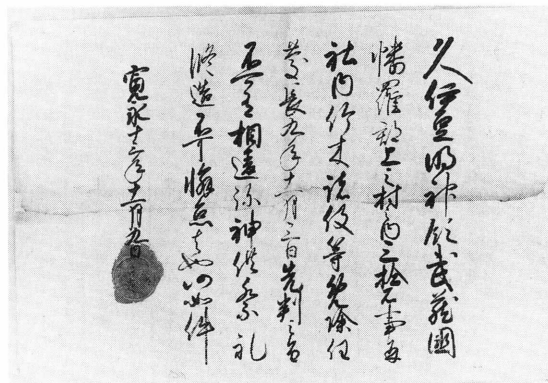 久伊豆明神領武蔵國
幡羅郡上之村内三拾石事并
社内竹木諸役等免除任
慶長九年十一月三日先判之旨
不可有相違弥神供祭礼
修造不可懈怠者也仍如件
寛永十三年十一月九日